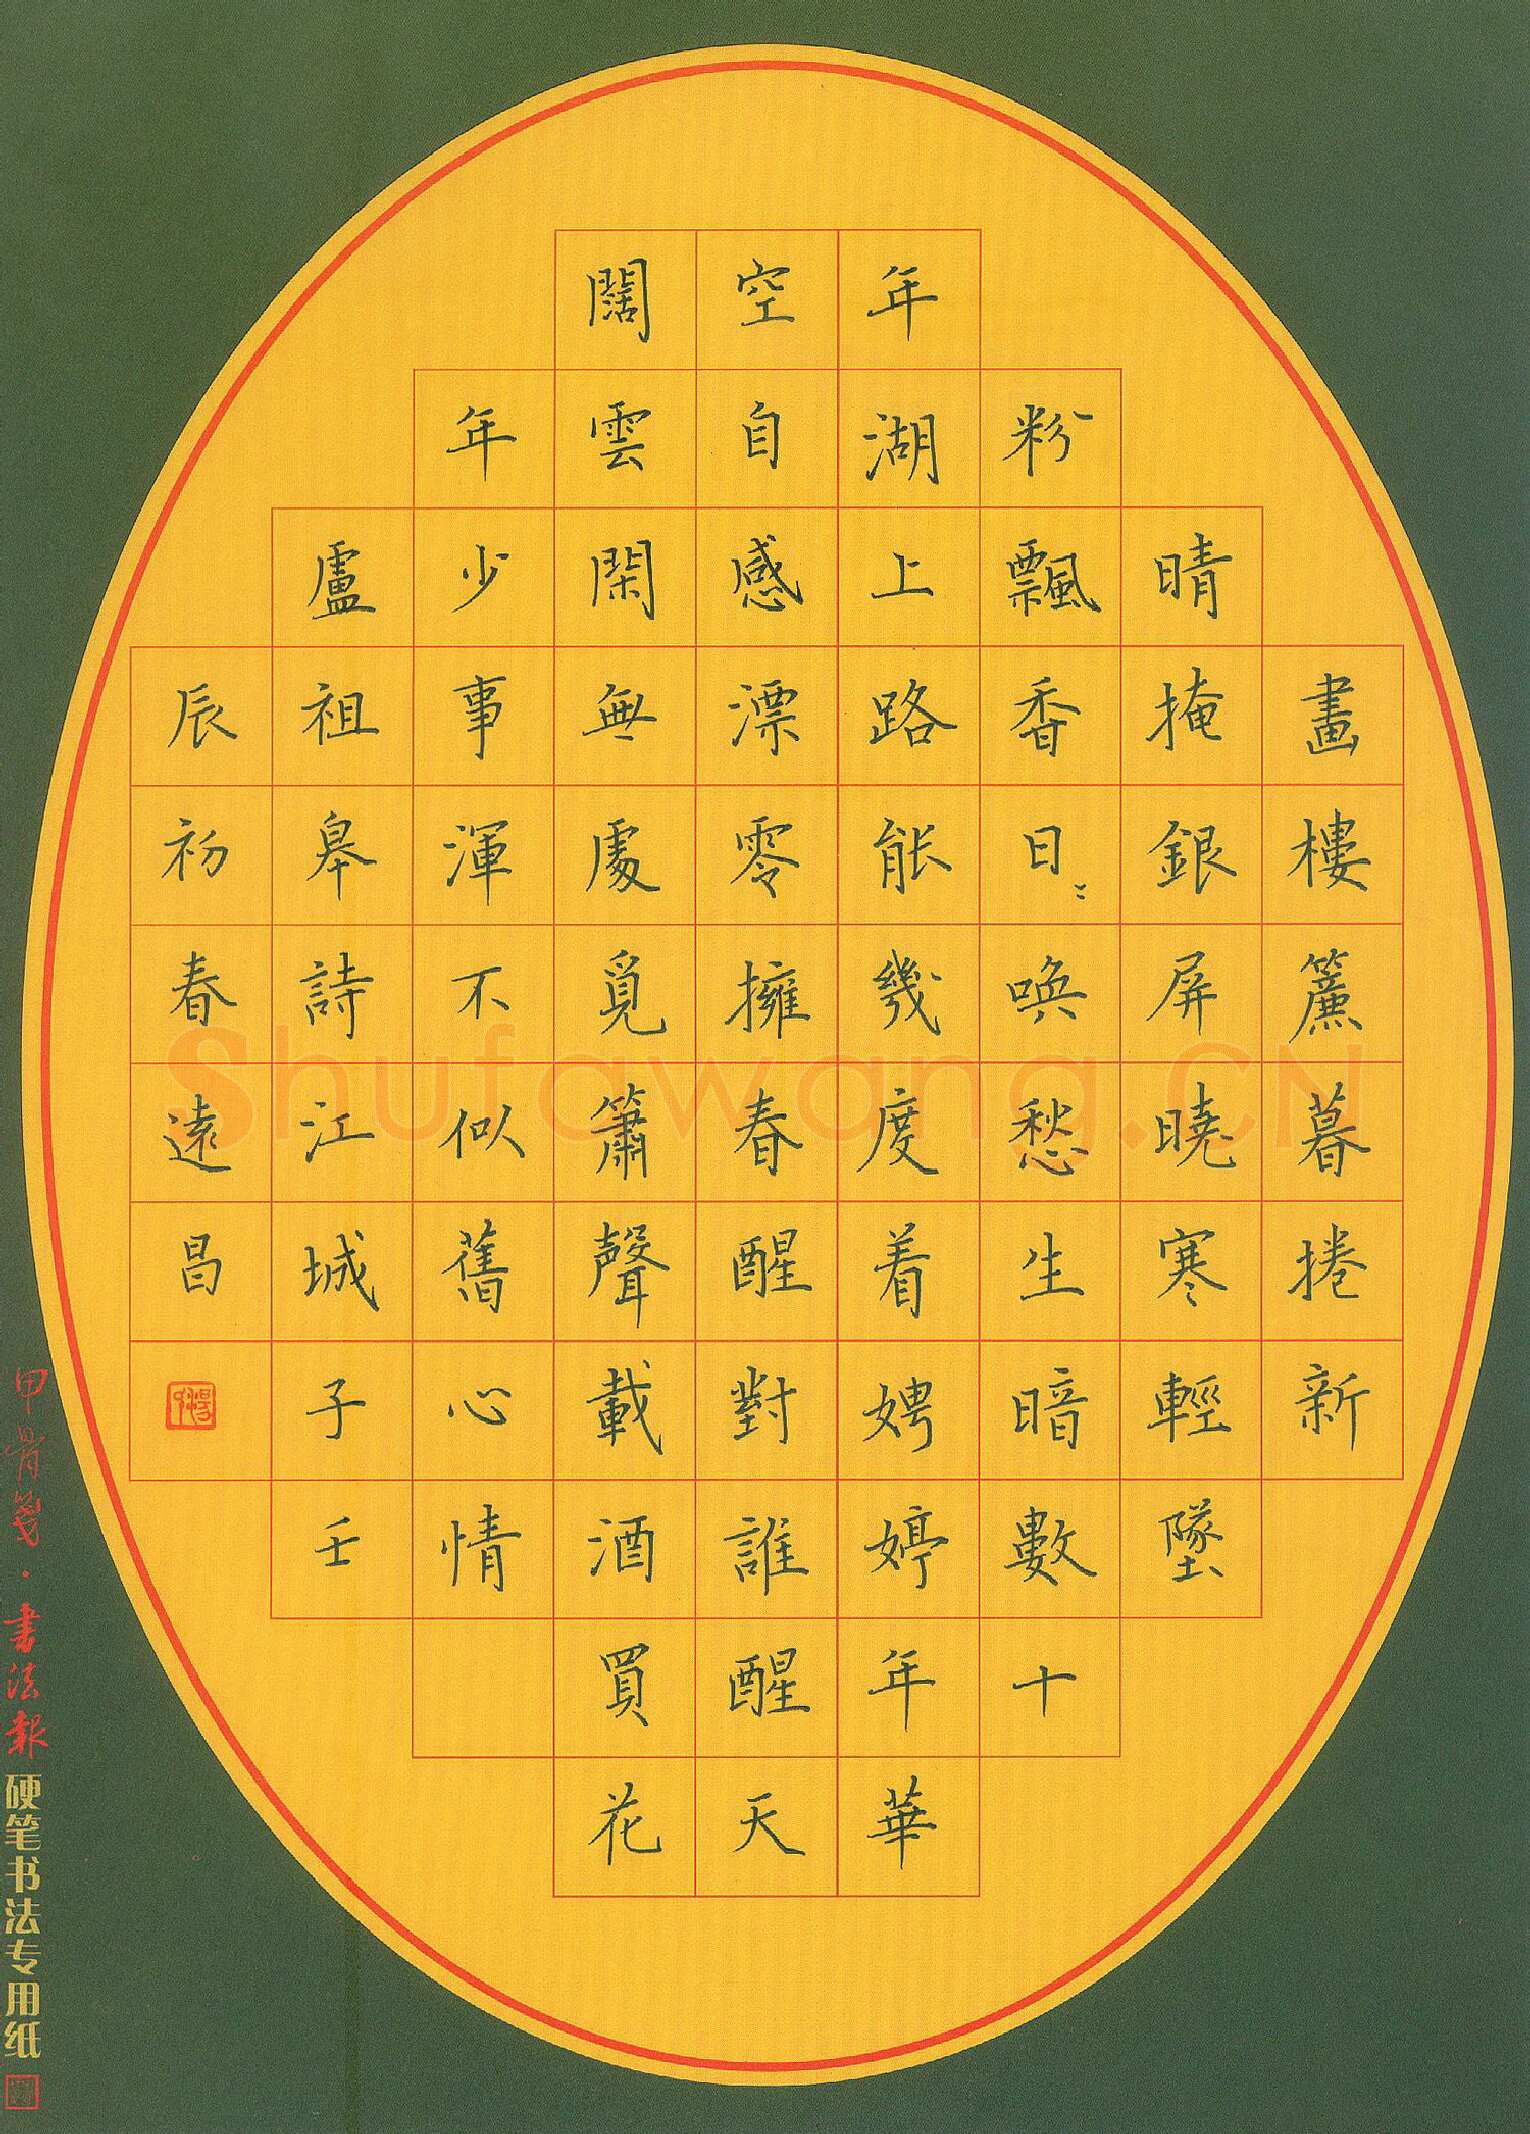 畫樓簾暮捲新
晴掩銀屏曉寒輕墜
粉飄香日〻喚愁生暗數十
年湖上路能幾度着娉婷年華
空自感漂零擁春醒對誰醒天
闊雲閑無處覓簫聲載酒買花
年少事渾不似舊心情
盧祖皋詩江城子壬
辰初春遠昌
甲骨箋·書法報硬笔书法专用纸
Shufawang.CN